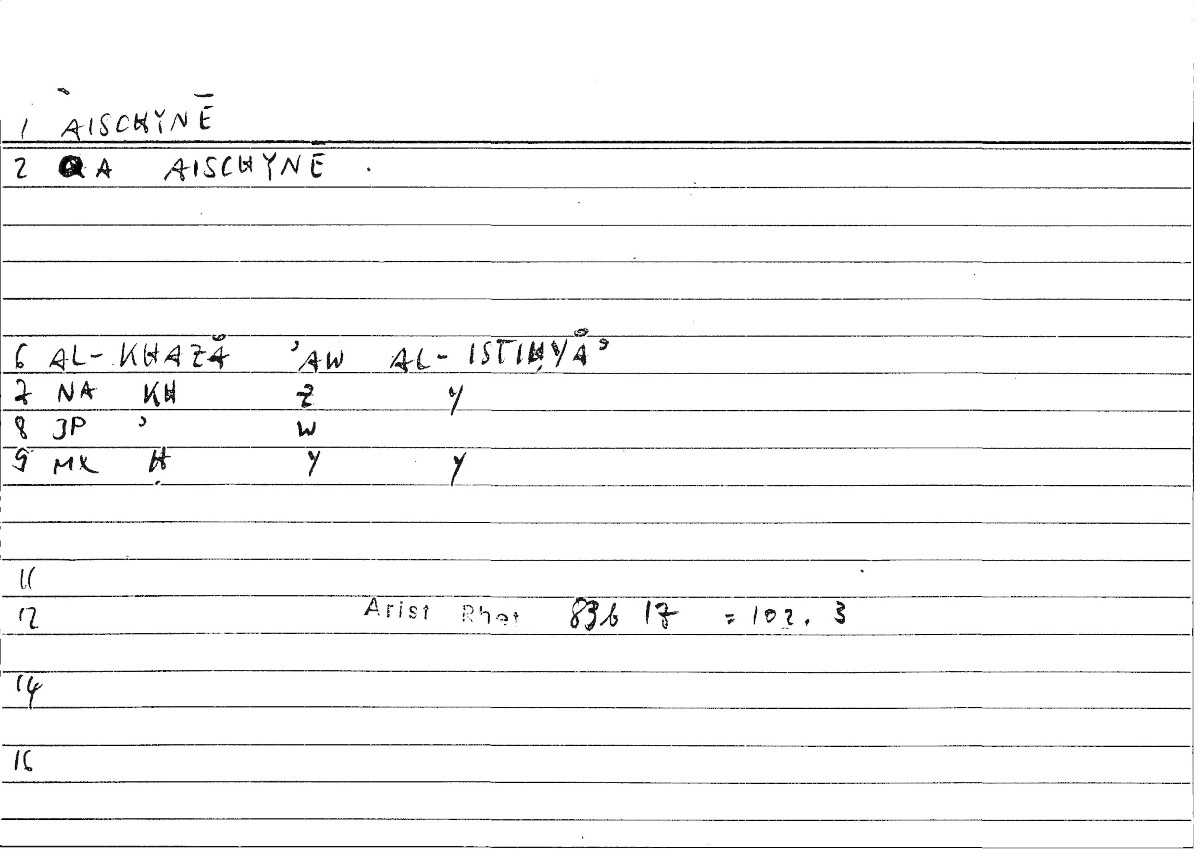 1 AISCHYNĒ
2 QA AISCHYNĒ .
6 AL-KHAZĀ ʾAW AL-ISTIḤYĀʾ
7 NA KH Z Y
8 JP ʾ W
9 MX Ḥ Y Y
11
12 Arist Rhet 83b 17 = 102. 3
14
16